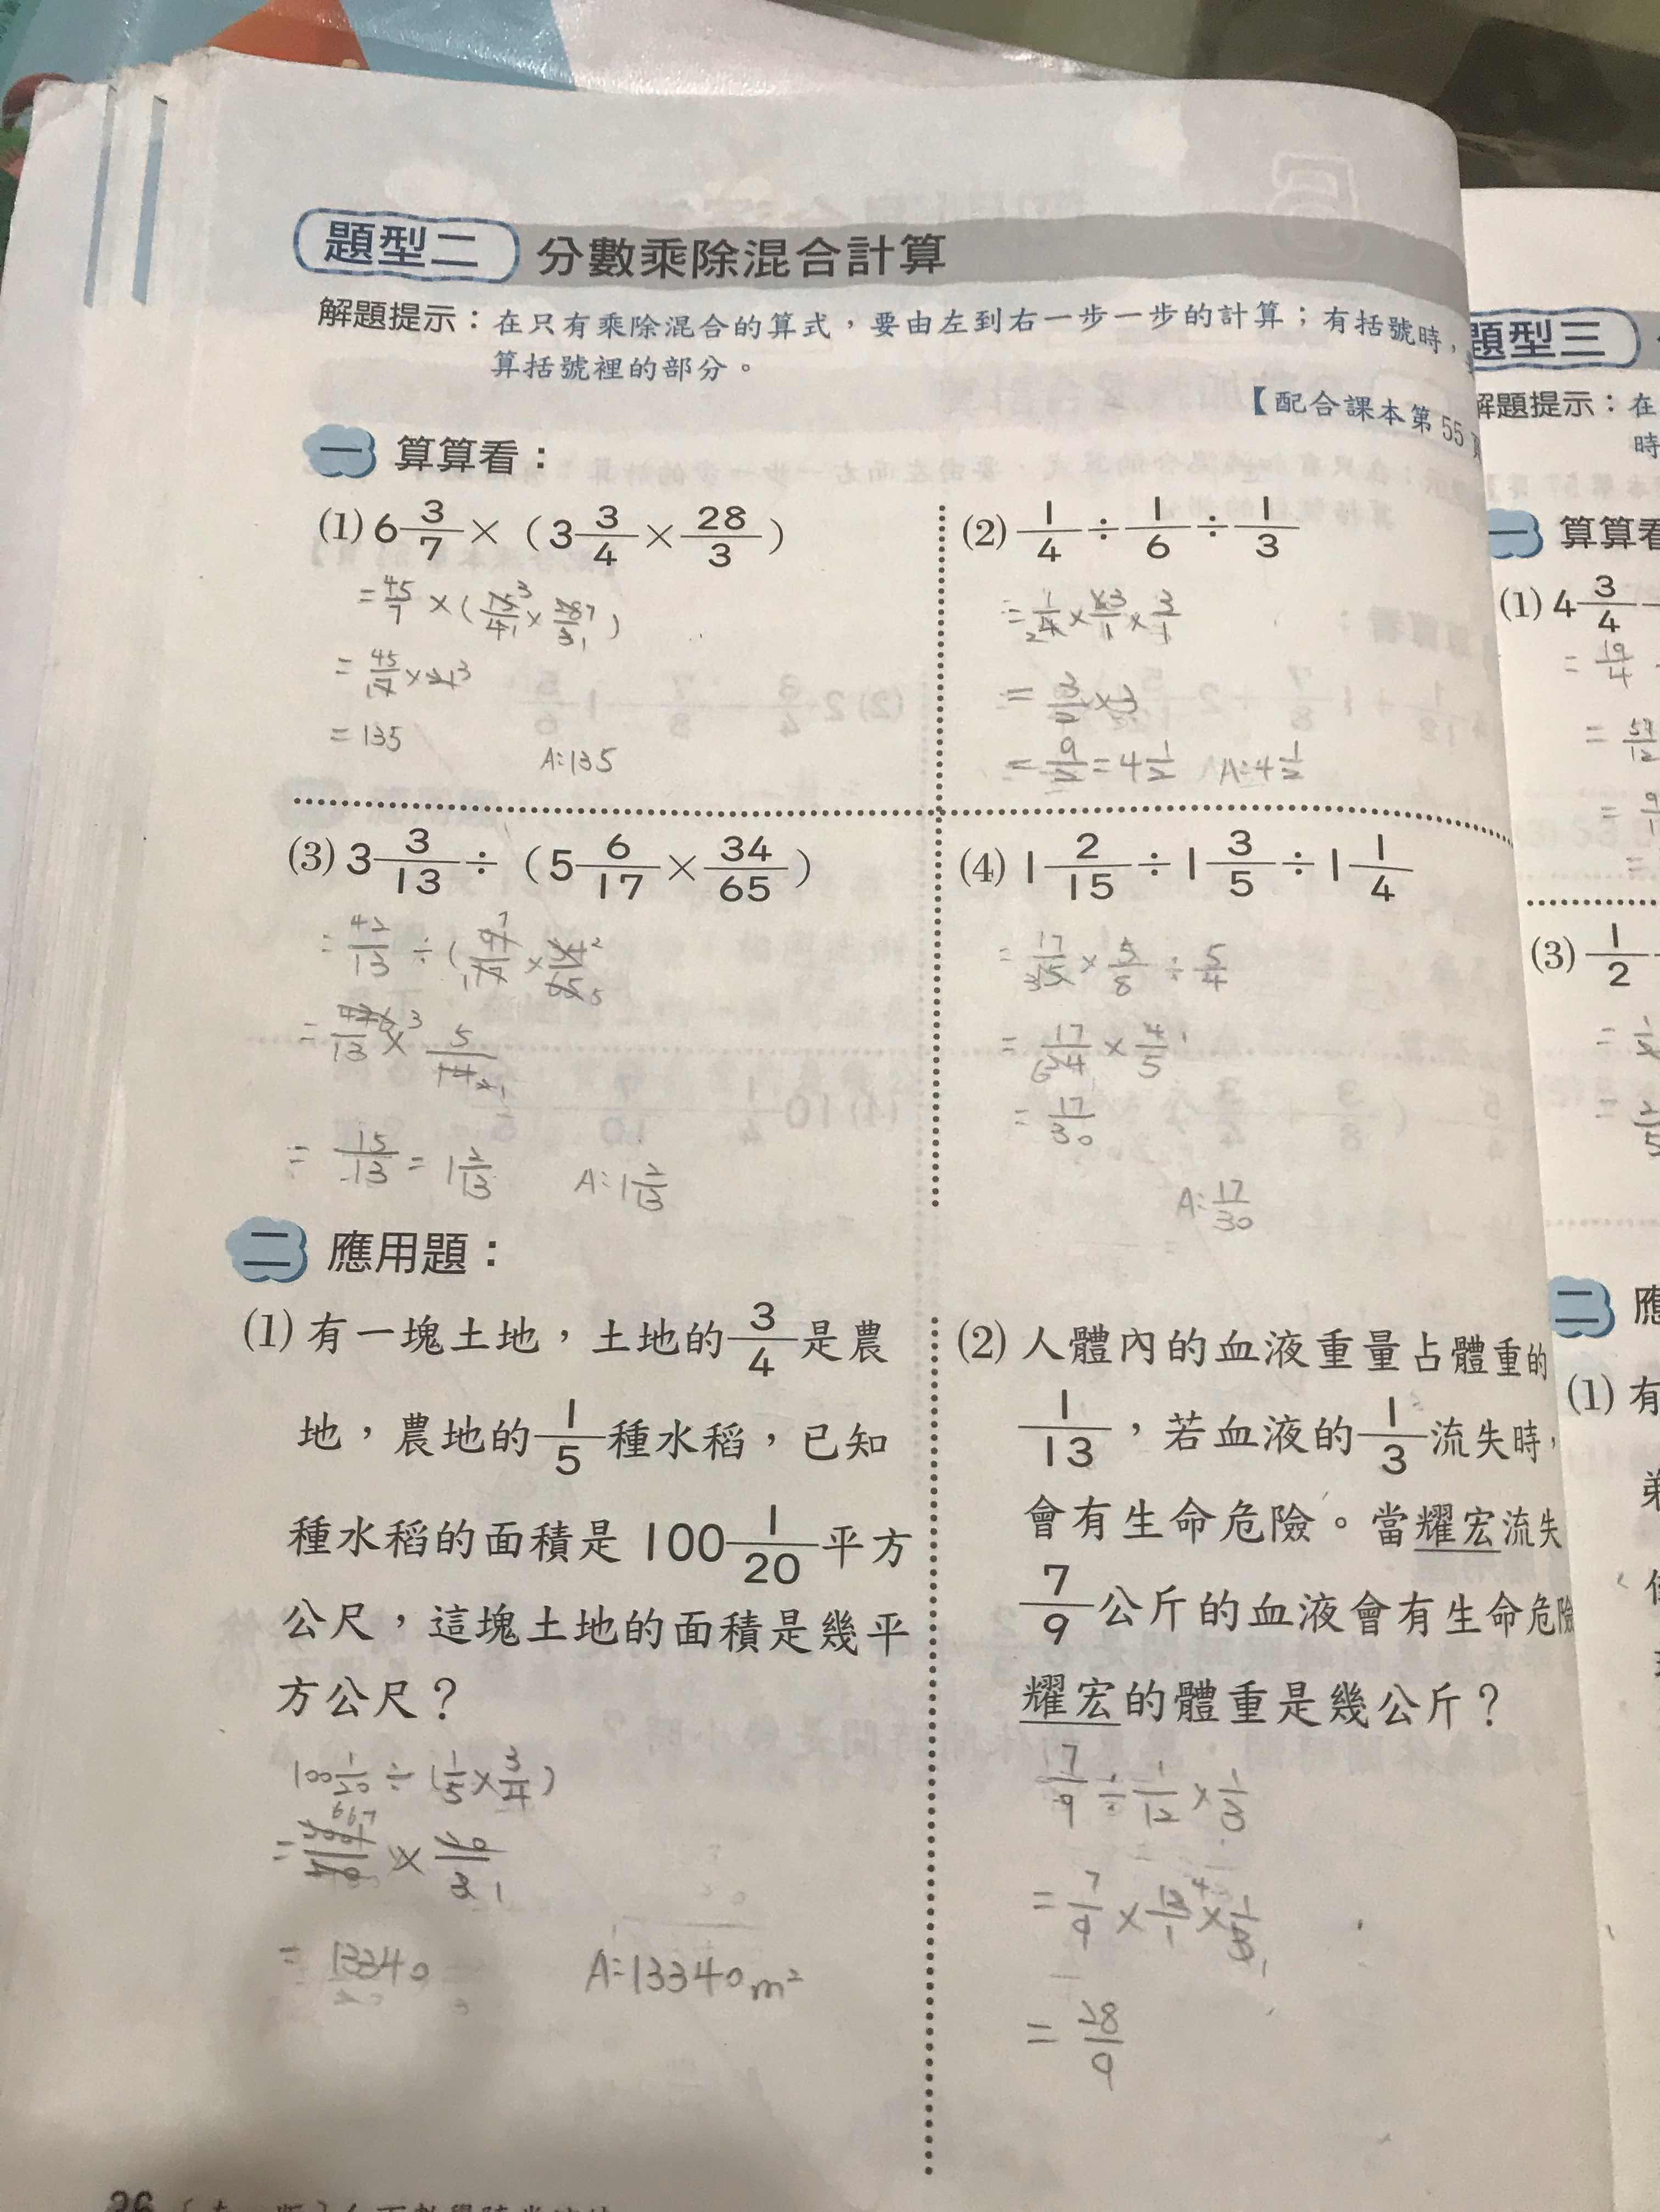 題型二 分數乘除混合計算
解題提示：在只有乘除混合的算式，要由左到右一步一步的計算；有括號時，
算括號裡的部分。
【配合課本第55
一 算算看：
(1) 6 3/7 × （3 3/4 × 28/3）
= 45/7 × (15/4 × 28/3)
= 45/7 × 21 3
= 135
A:135
(2) 1/4 ÷ 1/6 ÷ 1/3
= 1/4 × 6/1 × 3/1
= 3/2 × 3
= 9/2 = 4 1/2 A:4 1/2
(3) 3 3/13 ÷ （5 6/17 × 34/65）
= 42/13 ÷ (91/17 × 34/65)
= 42/13 × 5/14
= 15/13 = 1 2/13 A:1 2/13
(4) 1 2/15 ÷ 1 3/5 ÷ 1 1/4
= 17/15 × 5/8 ÷ 5/4
= 17/24 × 4/5
= 17/30
A:17/30
二 應用題：
(1) 有一塊土地，土地的 3/4 是農
地，農地的 1/5 種水稻，已知
種水稻的面積是 100 1/20 平方
公尺，這塊土地的面積是幾平
方公尺？
100 1/20 ÷ (1/5 × 3/4)
= 2001/20 × 20/3
= 13340
A:13340 m²
(2) 人體內的血液重量占體重的
1/13，若血液的 1/3 流失時，
會有生命危險。當耀宏流失
7/9 公斤的血液會有生命危險
耀宏的體重是幾公斤？
7/9 ÷ 1/12 × 1/3
= 7/9 × 12/1 × 1/3
= 28/9
題型三
解題提示：在
時
一 算算看
(1) 4 3/4
= 19/4
= 57/12
(3) 1/2
二 應
(1) 有